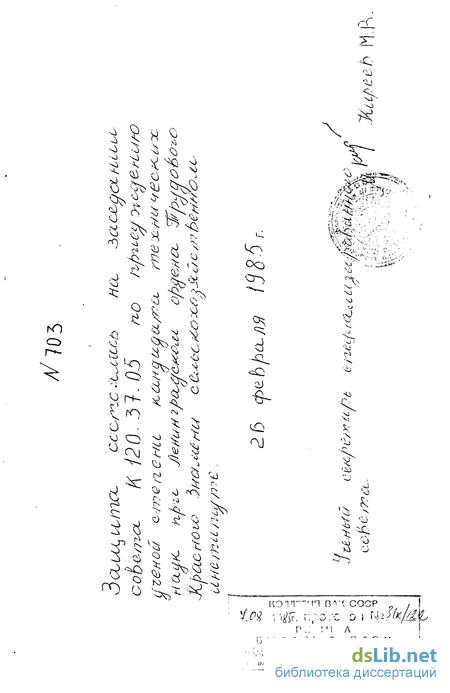 N 703
Защита состоялась на заседании
совета К 120.37.05 по присуждению
ученой степени кандидата технических
наук при Ленинградском ордена Трудового
Красного Знамени сельскохозяйственном
институте.
26 февраля 1985 г.
Ученый секретарь специализированного
совета. Киреев М.В.
СССР
dsLib.net
библиотека диссертаций